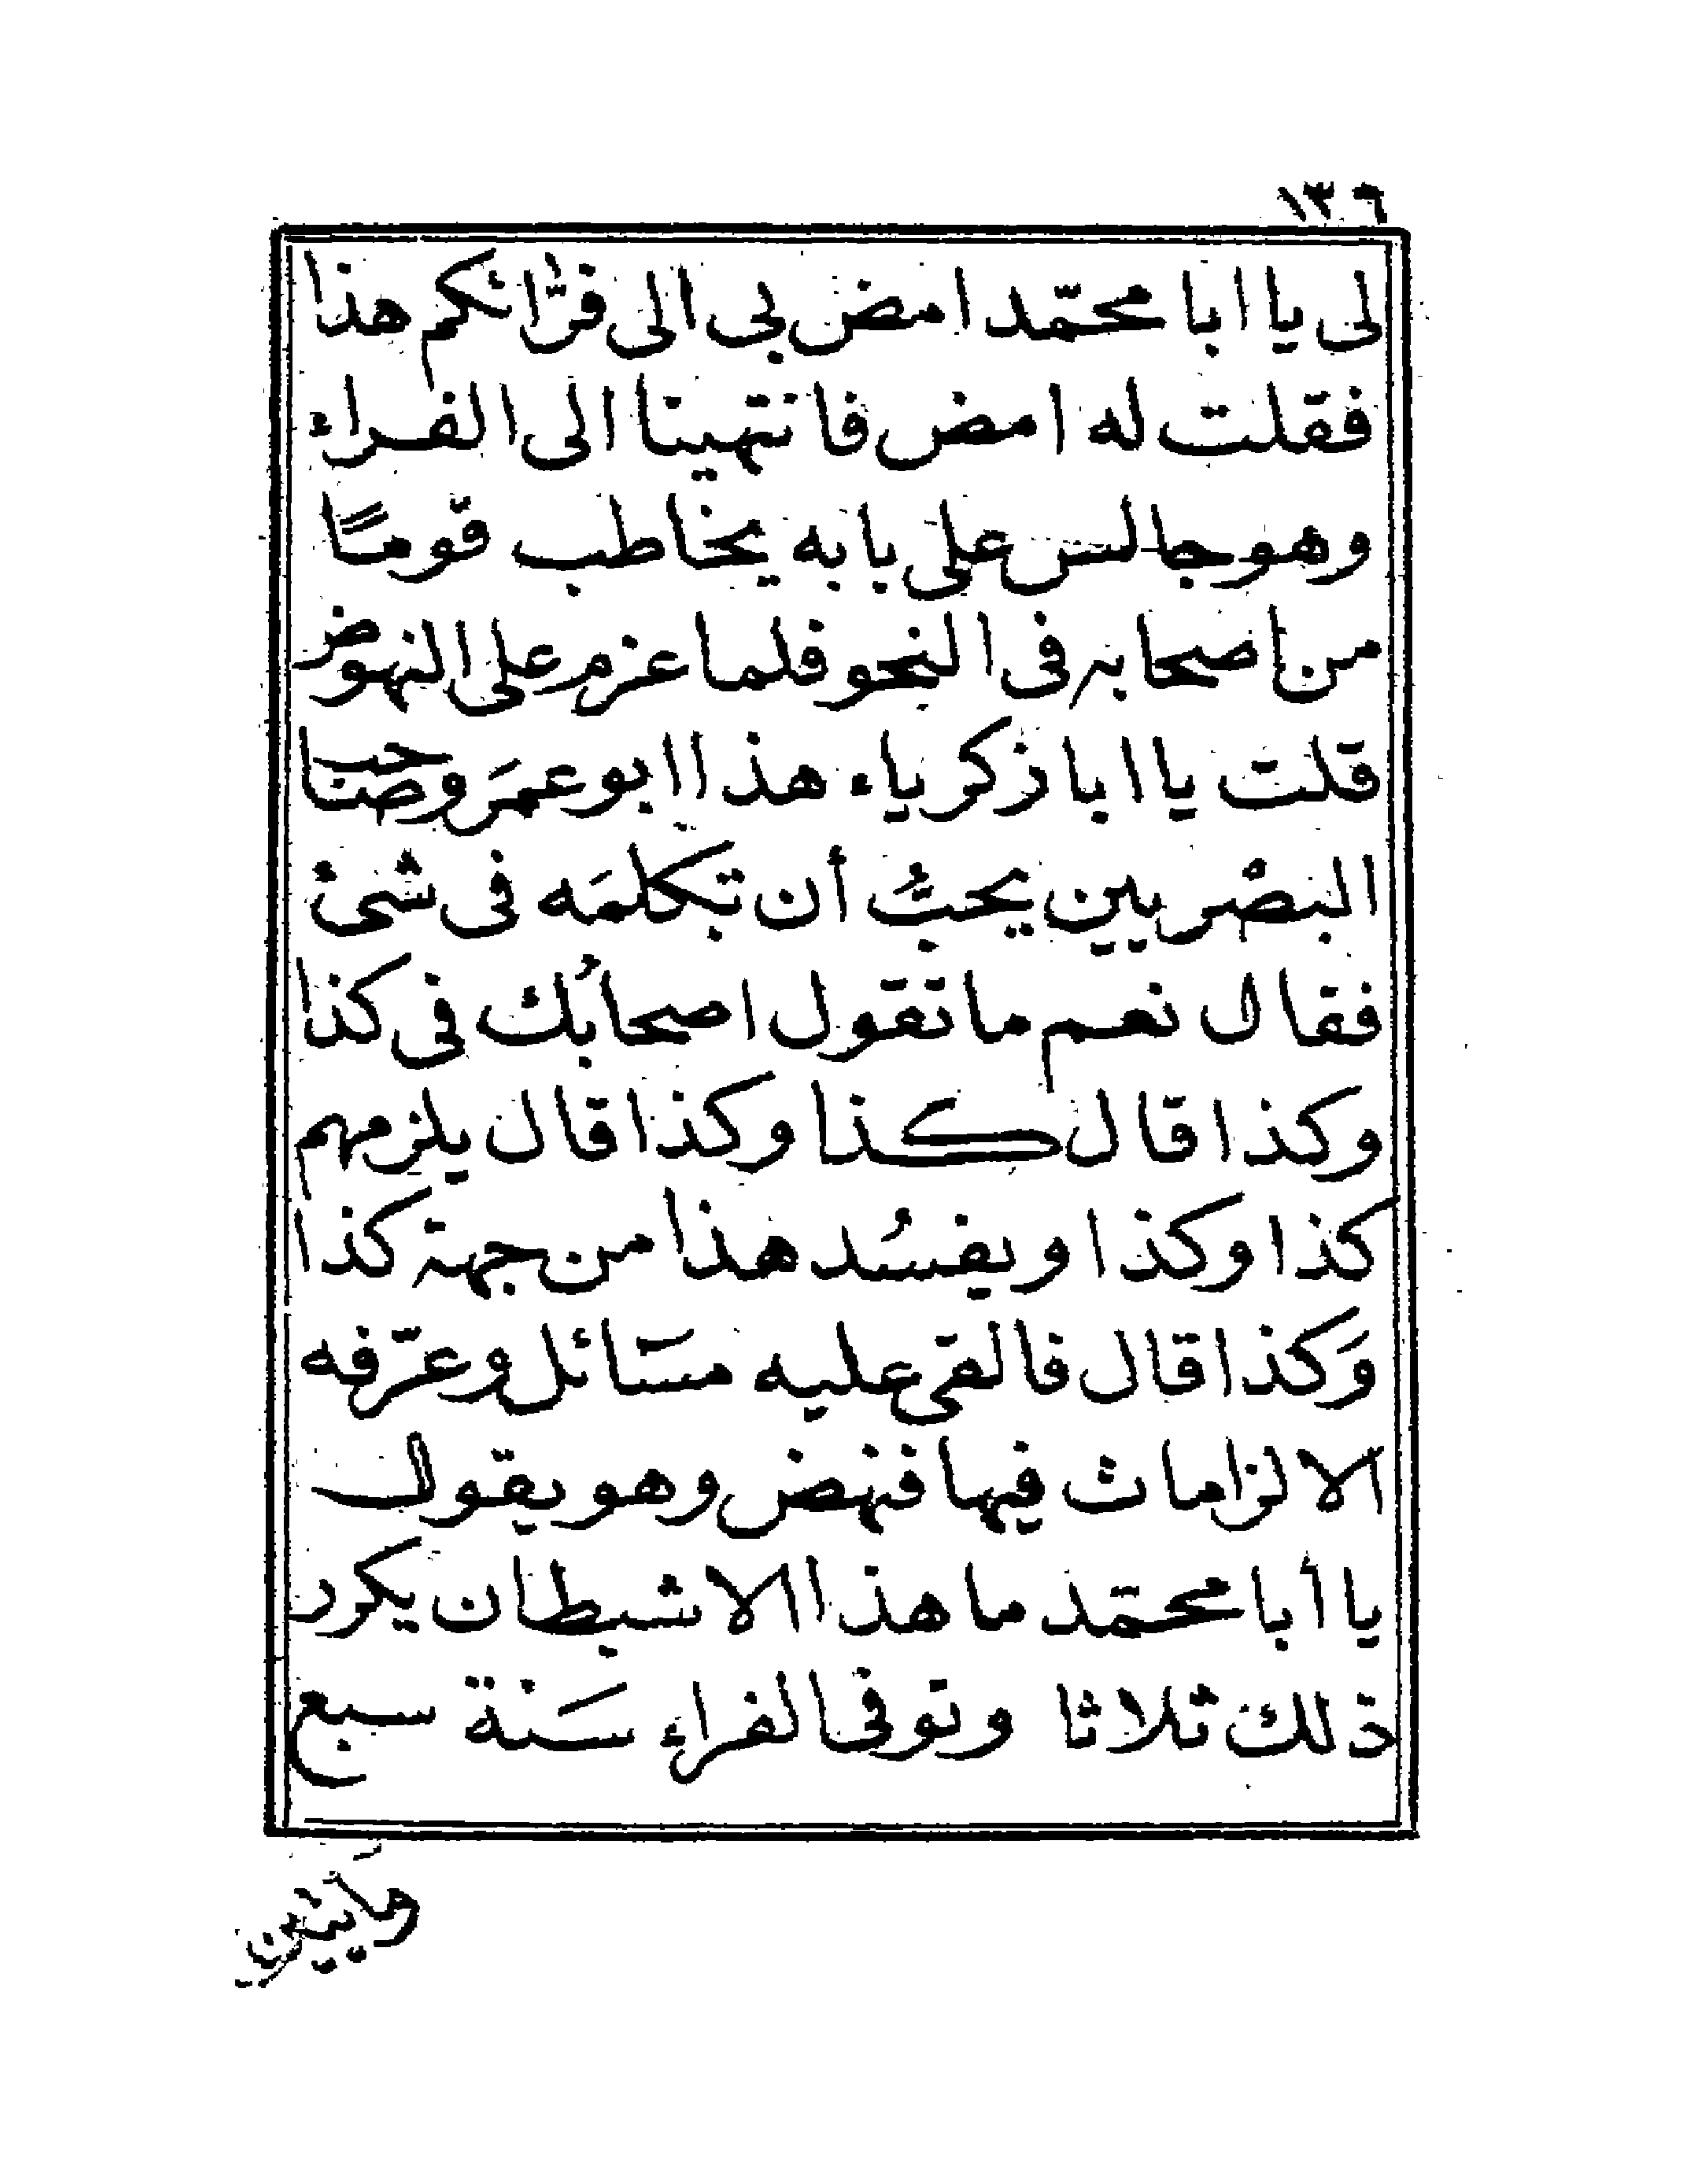 ١٣٦
لى يا ابا محمّد امض بى الى فرّائكم هذا
فقلت له امض فانتهينا الى الفراء
وهو جالس على بابه يخاطب قومًا
من اصحابه فى النحو فلما عزم على النهوض
قلت يا ابا زكرياء هذا ابو عمَر وصَاحب
البصْريين يحبُّ أن تكلمَه فى شىء
فقال نعم ما تقول اصحابُك فى كذا
وكذا قال كذا وكذا قال يلزمهم
كذا وكذا ويفسُد هذا من جهة كذا
وَكذا قال فالقى عليه مسَائل وعرّفه
الالزامات فيها فنهض وهو يقول
يا أبا محمّد ما هذا الا شيطان يكرر
ذلك ثلاثا وتوفى الفراء سَنة سبع
ومأيتين